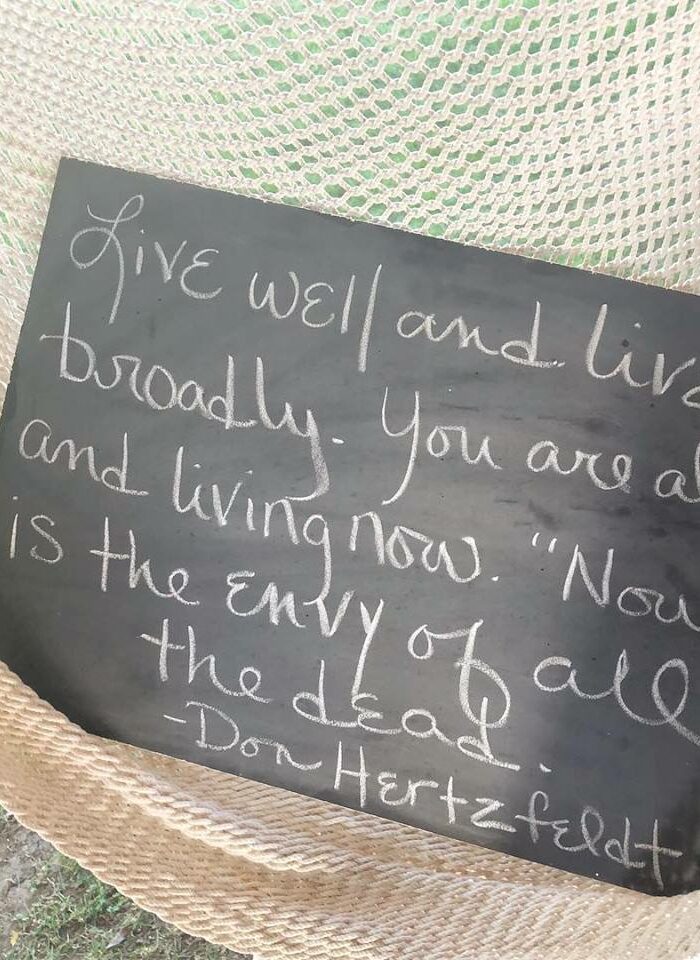 Live well and live
broadly. You are al
and living now. "Now
is the envy of all
the dead.
-Don Hertzfeldt